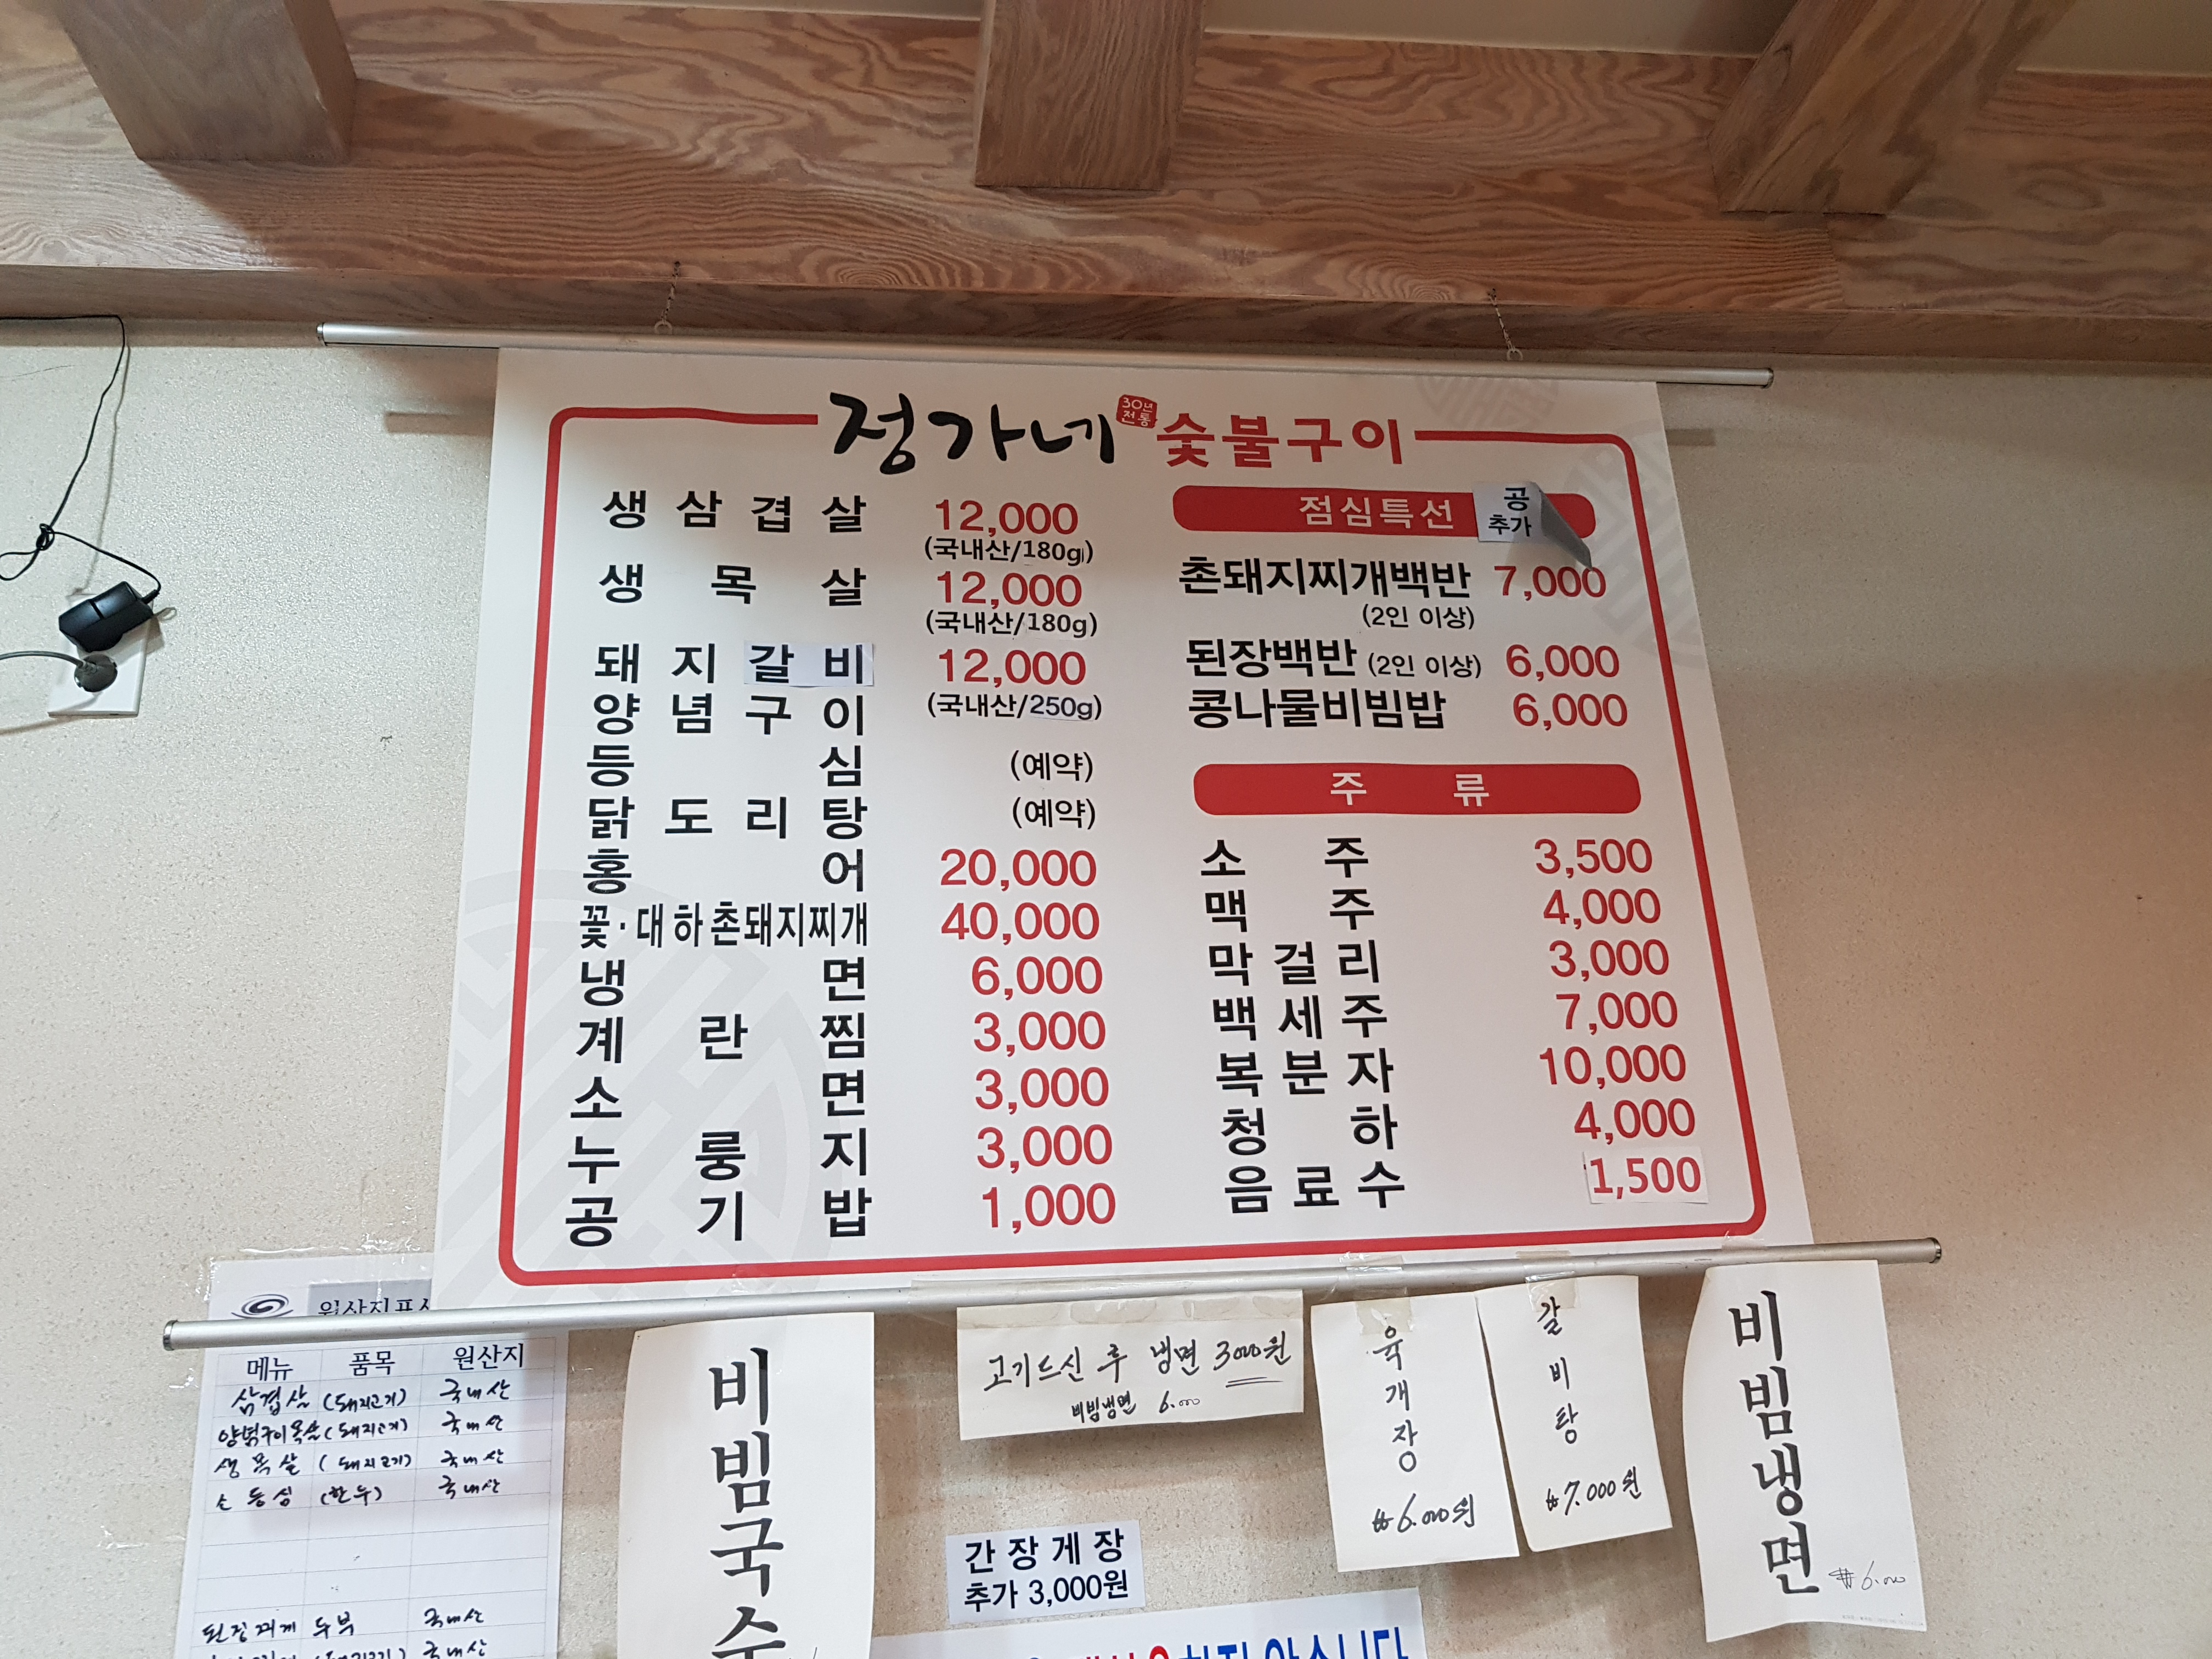 정가네 30년 전통 숯불구이
생삼겹살 12,000
(국내산/180g)
생목살 12,000
(국내산/180g)
돼지갈비 12,000
양념구이 (국내산/250g)
등심 (예약)
닭도리탕 (예약)
홍어 20,000
꽃·대하촌돼지찌개 40,000
냉면 6,000
계란찜 3,000
소면 3,000
누룽지 3,000
공기밥 1,000
점심특선
공
추가
촌돼지찌개백반 7,000
(2인 이상)
된장백반 (2인 이상) 6,000
콩나물비빔밥 6,000
주류
소주 3,500
맥주 4,000
막걸리 3,000
백세주 7,000
복분자 10,000
청하 4,000
음료수 1,500
원산지표시
메뉴 품목 원산지
삼겹살 (돼지고기) 국내산
양념구이목살 (돼지고기) 국내산
생목살 (돼지고기) 국내산
소등심 (한우) 국내산
된장찌개 두부 국내산
국내산
비빔국수
고기드신 후 냉면 3000원
비빔냉면 6.000
간장게장
추가 3,000원
육개장
₩6.000원
갈비탕
₩7.000원
비빔냉면
₩6.000